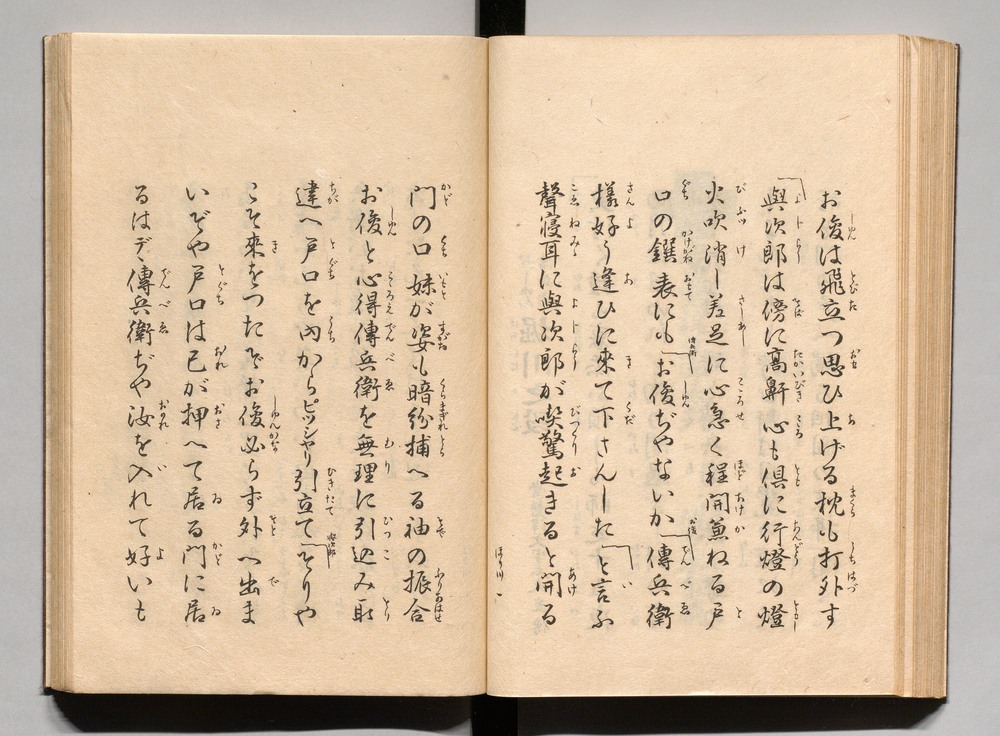 お俊は飛立つ思ひ上げる枕も打外す
與次郎は傍に高鼾心も倶に行燈の燈
火吹消し差足に心急く程開兼ねる戸
口の鐉表にも「お俊ぢやないか「傳兵衛
樣好う逢ひに來て下さんした「と言ふ
聲寝耳に與次郎が喫驚起きると開る
ほり川 一
門の口妹が姿も暗紛捕へる袖の振合
お俊と心得傳兵衛を無理に引込み取
違へ戸口を内からピッシャリ引立て「そりや
こそ來をつたぞお俊必らず外へ出ま
いぞや戸口は己が押へて居る門に居
るはデ傳兵衛ぢや汝を入れて好いも